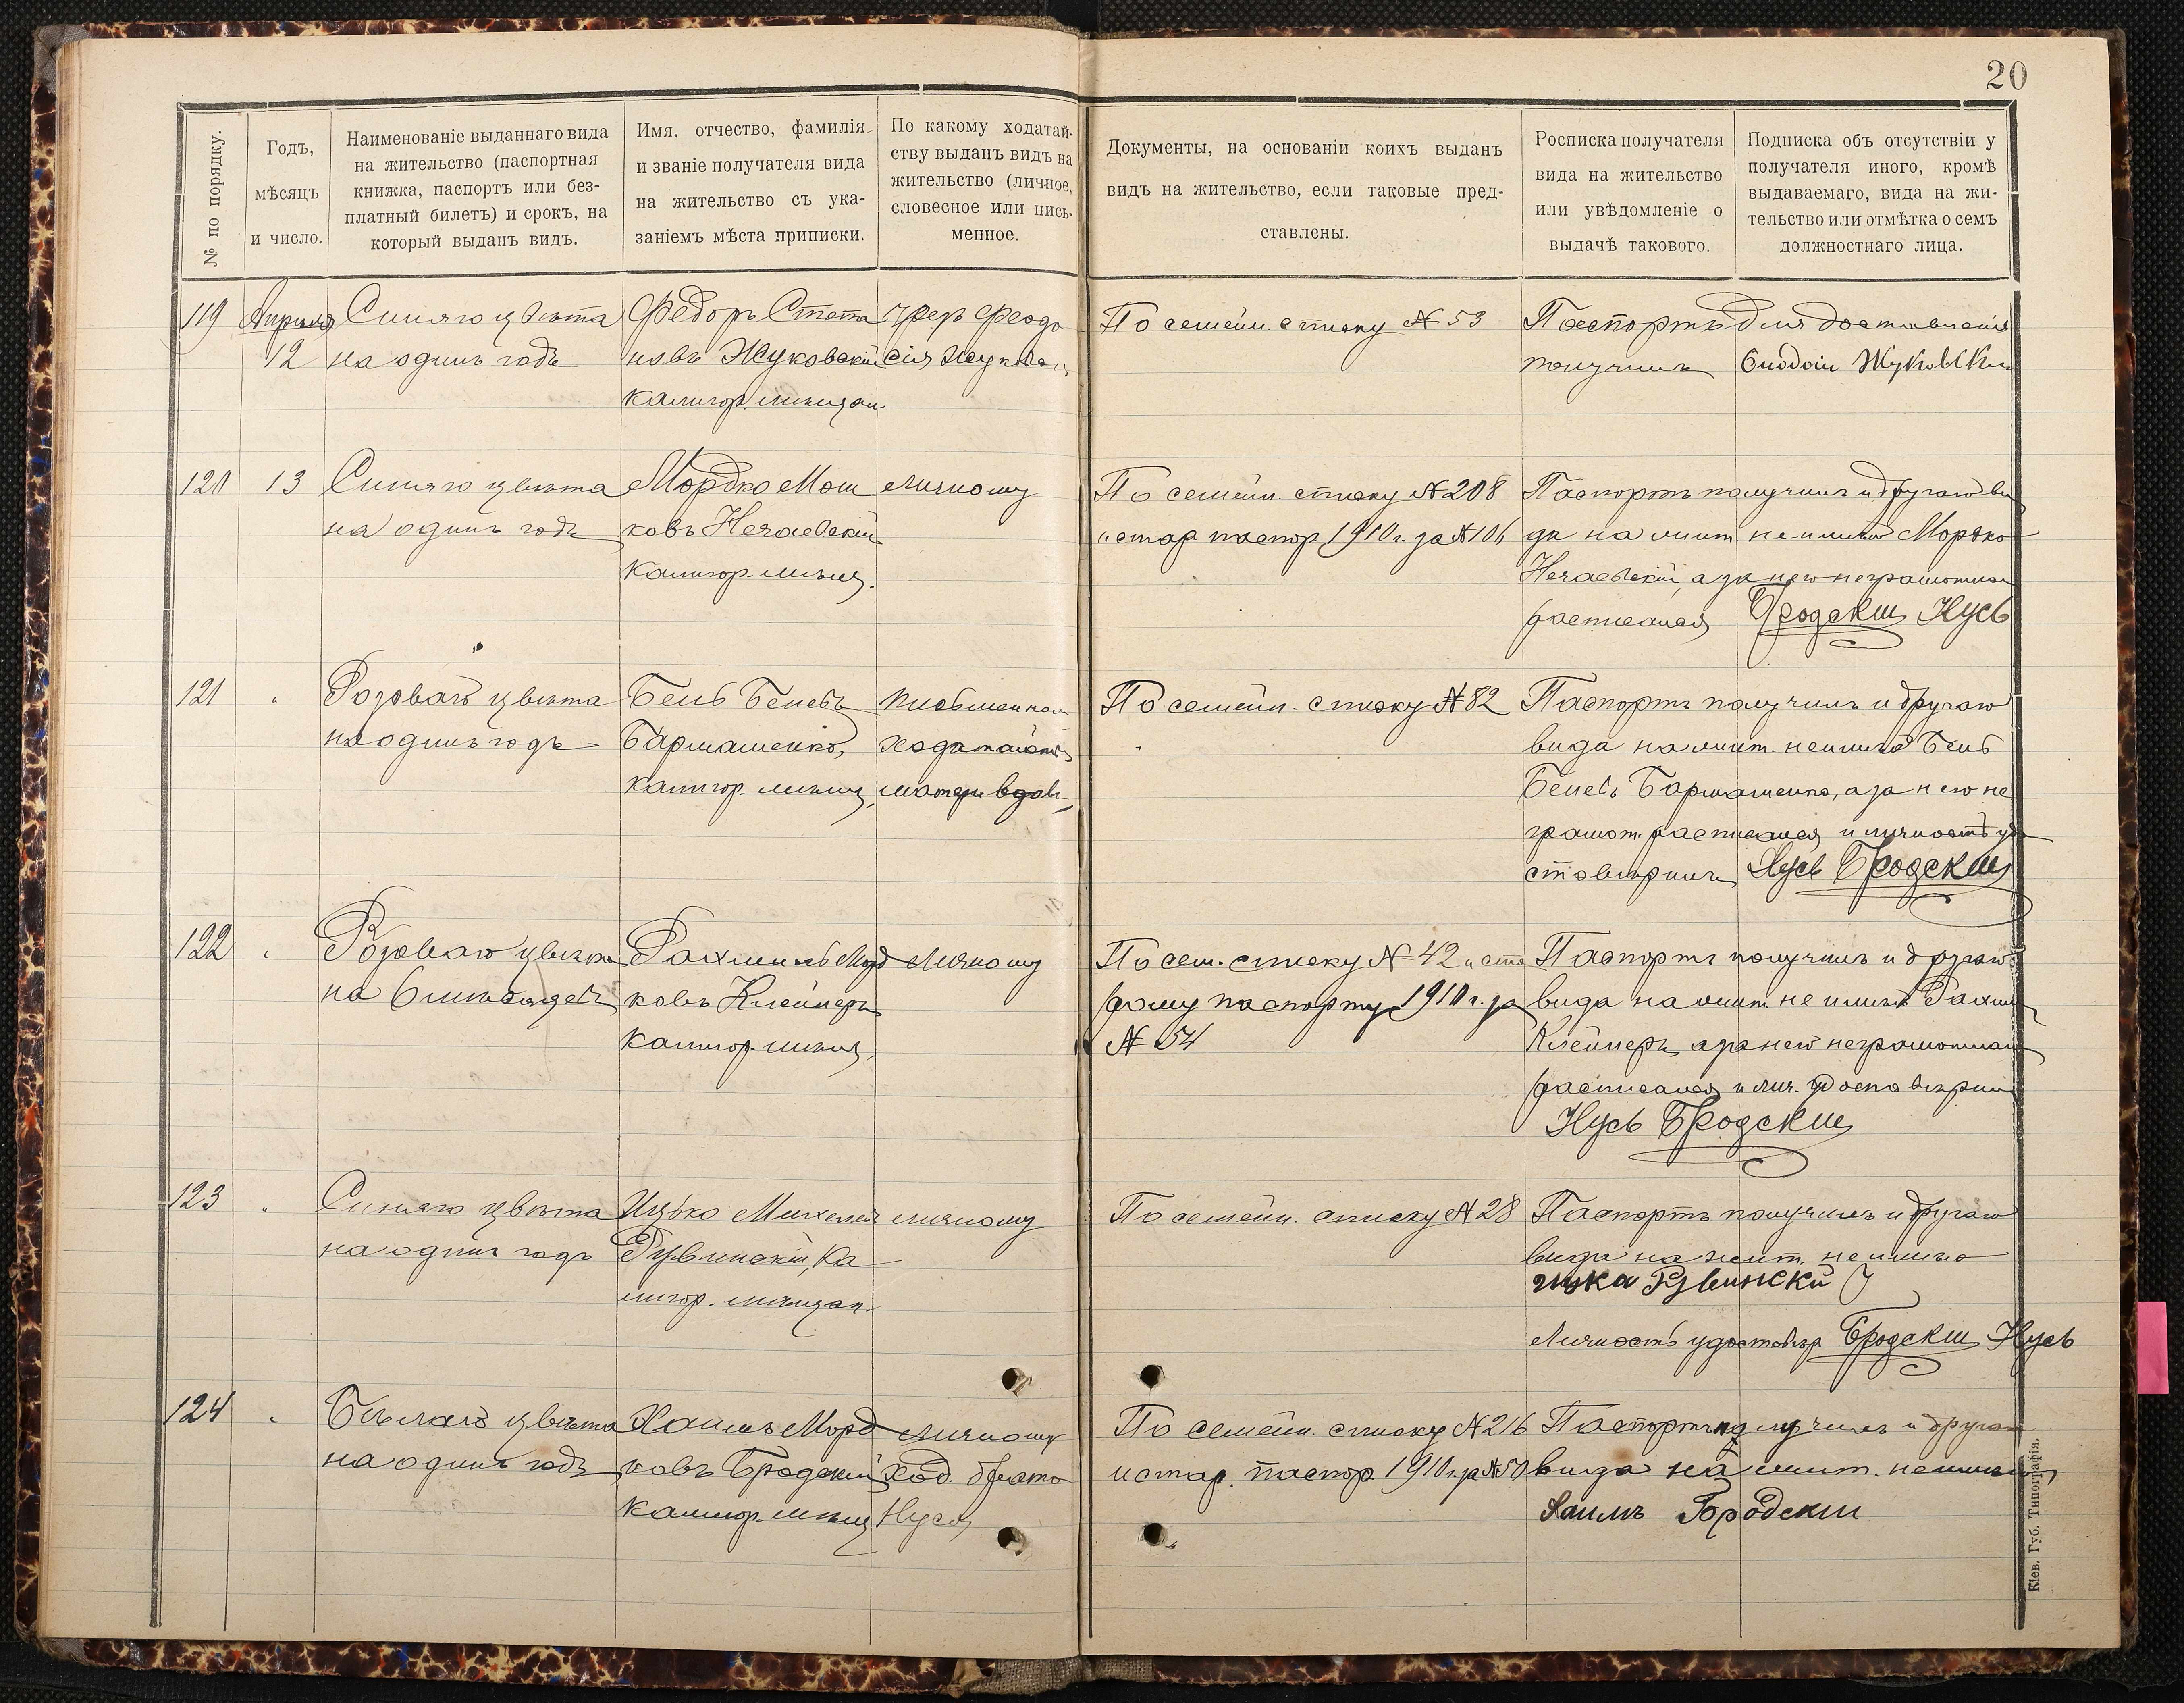 20
№ по порядку.
Годъ,
мѣсяцъ
и число.
Наименованіе выданнаго вида
на жительство (паспортная
книжка, паспортъ или без-
платный билетъ) и срокъ, на
который выданъ видъ.
Имя, отчество, фамилія
и званіе получателя вида
на жительство съ ука-
заніемъ мѣста приписки.
По какому ходатай-
ству выданъ видъ на
жительство (личное,
словесное или пись-
менное.
Документы, на основаніи коихъ выданъ
видъ на жительство, если таковые пред-
ставлены.
Росписка получателя
вида на жительство
или увѣдомленіе о
выдачѣ такового.
Подписка объ отсутствіи у
получателя иного, кромѣ
выдаваемаго, вида на жи-
тельство или отмѣтка о семъ
должностнаго лица.
119
Апрѣля
12
Синяго цвѣта
на одинъ годъ
Федоръ Степа
новъ Жуковскій
Калигор. мѣщан.
чрез Феодо
сія Жуков
По семейн. списку № 53
Паспортъ для доставленія
получилъ
Жуковскі
120
13
Синяго цвѣта
на одинъ годъ
Мордко Мош
ковъ Нечаевскій
Калигор. мѣщ.
личному
По семейн. списку № 208
и стар. паспор 1910 г. за № 106
Паспортъ получилъ и другаго ви
да на жит. не имѣю Мордко
Нечаевскій, а за него неграмотнаго
расписался Бродскій Нусь
121
"
Розоваго цвѣта
на одинъ годъ
Бень Беневъ
Бармашенко,
калигор. мѣщ.
письменном
ходатайств
матери вдов
По семейн. списку № 82
Паспортъ получилъ и другаго
вида на жит. не имѣю Бень
Беневъ Бармашенко, а за него не
грамот. расписался и личность удо
стовѣрилъ Нусь Бродскій
122
"
Розоваго цвѣта
на 6 мѣсяцевъ
Рахмиль Морд
ковъ Клейнеръ
Калигор. мѣщ.
личному
По сем. списку № 42 и ста
рому паспорту 1910 г. за
№ 54
Паспортъ получилъ и другаго
вида на жит. не имѣю Рахмил
Клейнеръ, а за него неграмотнаго
расписался и лич. удостовѣрил
Нусь Бродскій
123
"
Синяго цвѣта
на одинъ годъ
Ицько Михелев
Рувинскій, Ка
лигор. мѣщан.
личному
По семейн. списку № 28
Паспортъ получилъ и другаго
вида на жит. не имѣю
Рувинскій
Личность удостовѣр Бродскій Нусь
124
"
Бѣлаго цвѣта
на одинъ годъ
Хаимъ Морд
ковъ Бродскій
Калигор. мѣщ
личному
ход. брата
Нуся
По семейн. списку № 216
и стар. паспор. 1910 г. за № 50
Паспортъ получилъ и другаго
вида на жит. не имѣю
Хаимъ Бродскій
Кіев. Губ. Типографія.